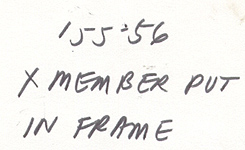 1-5-56
X MEMBER PUT
IN FRAME